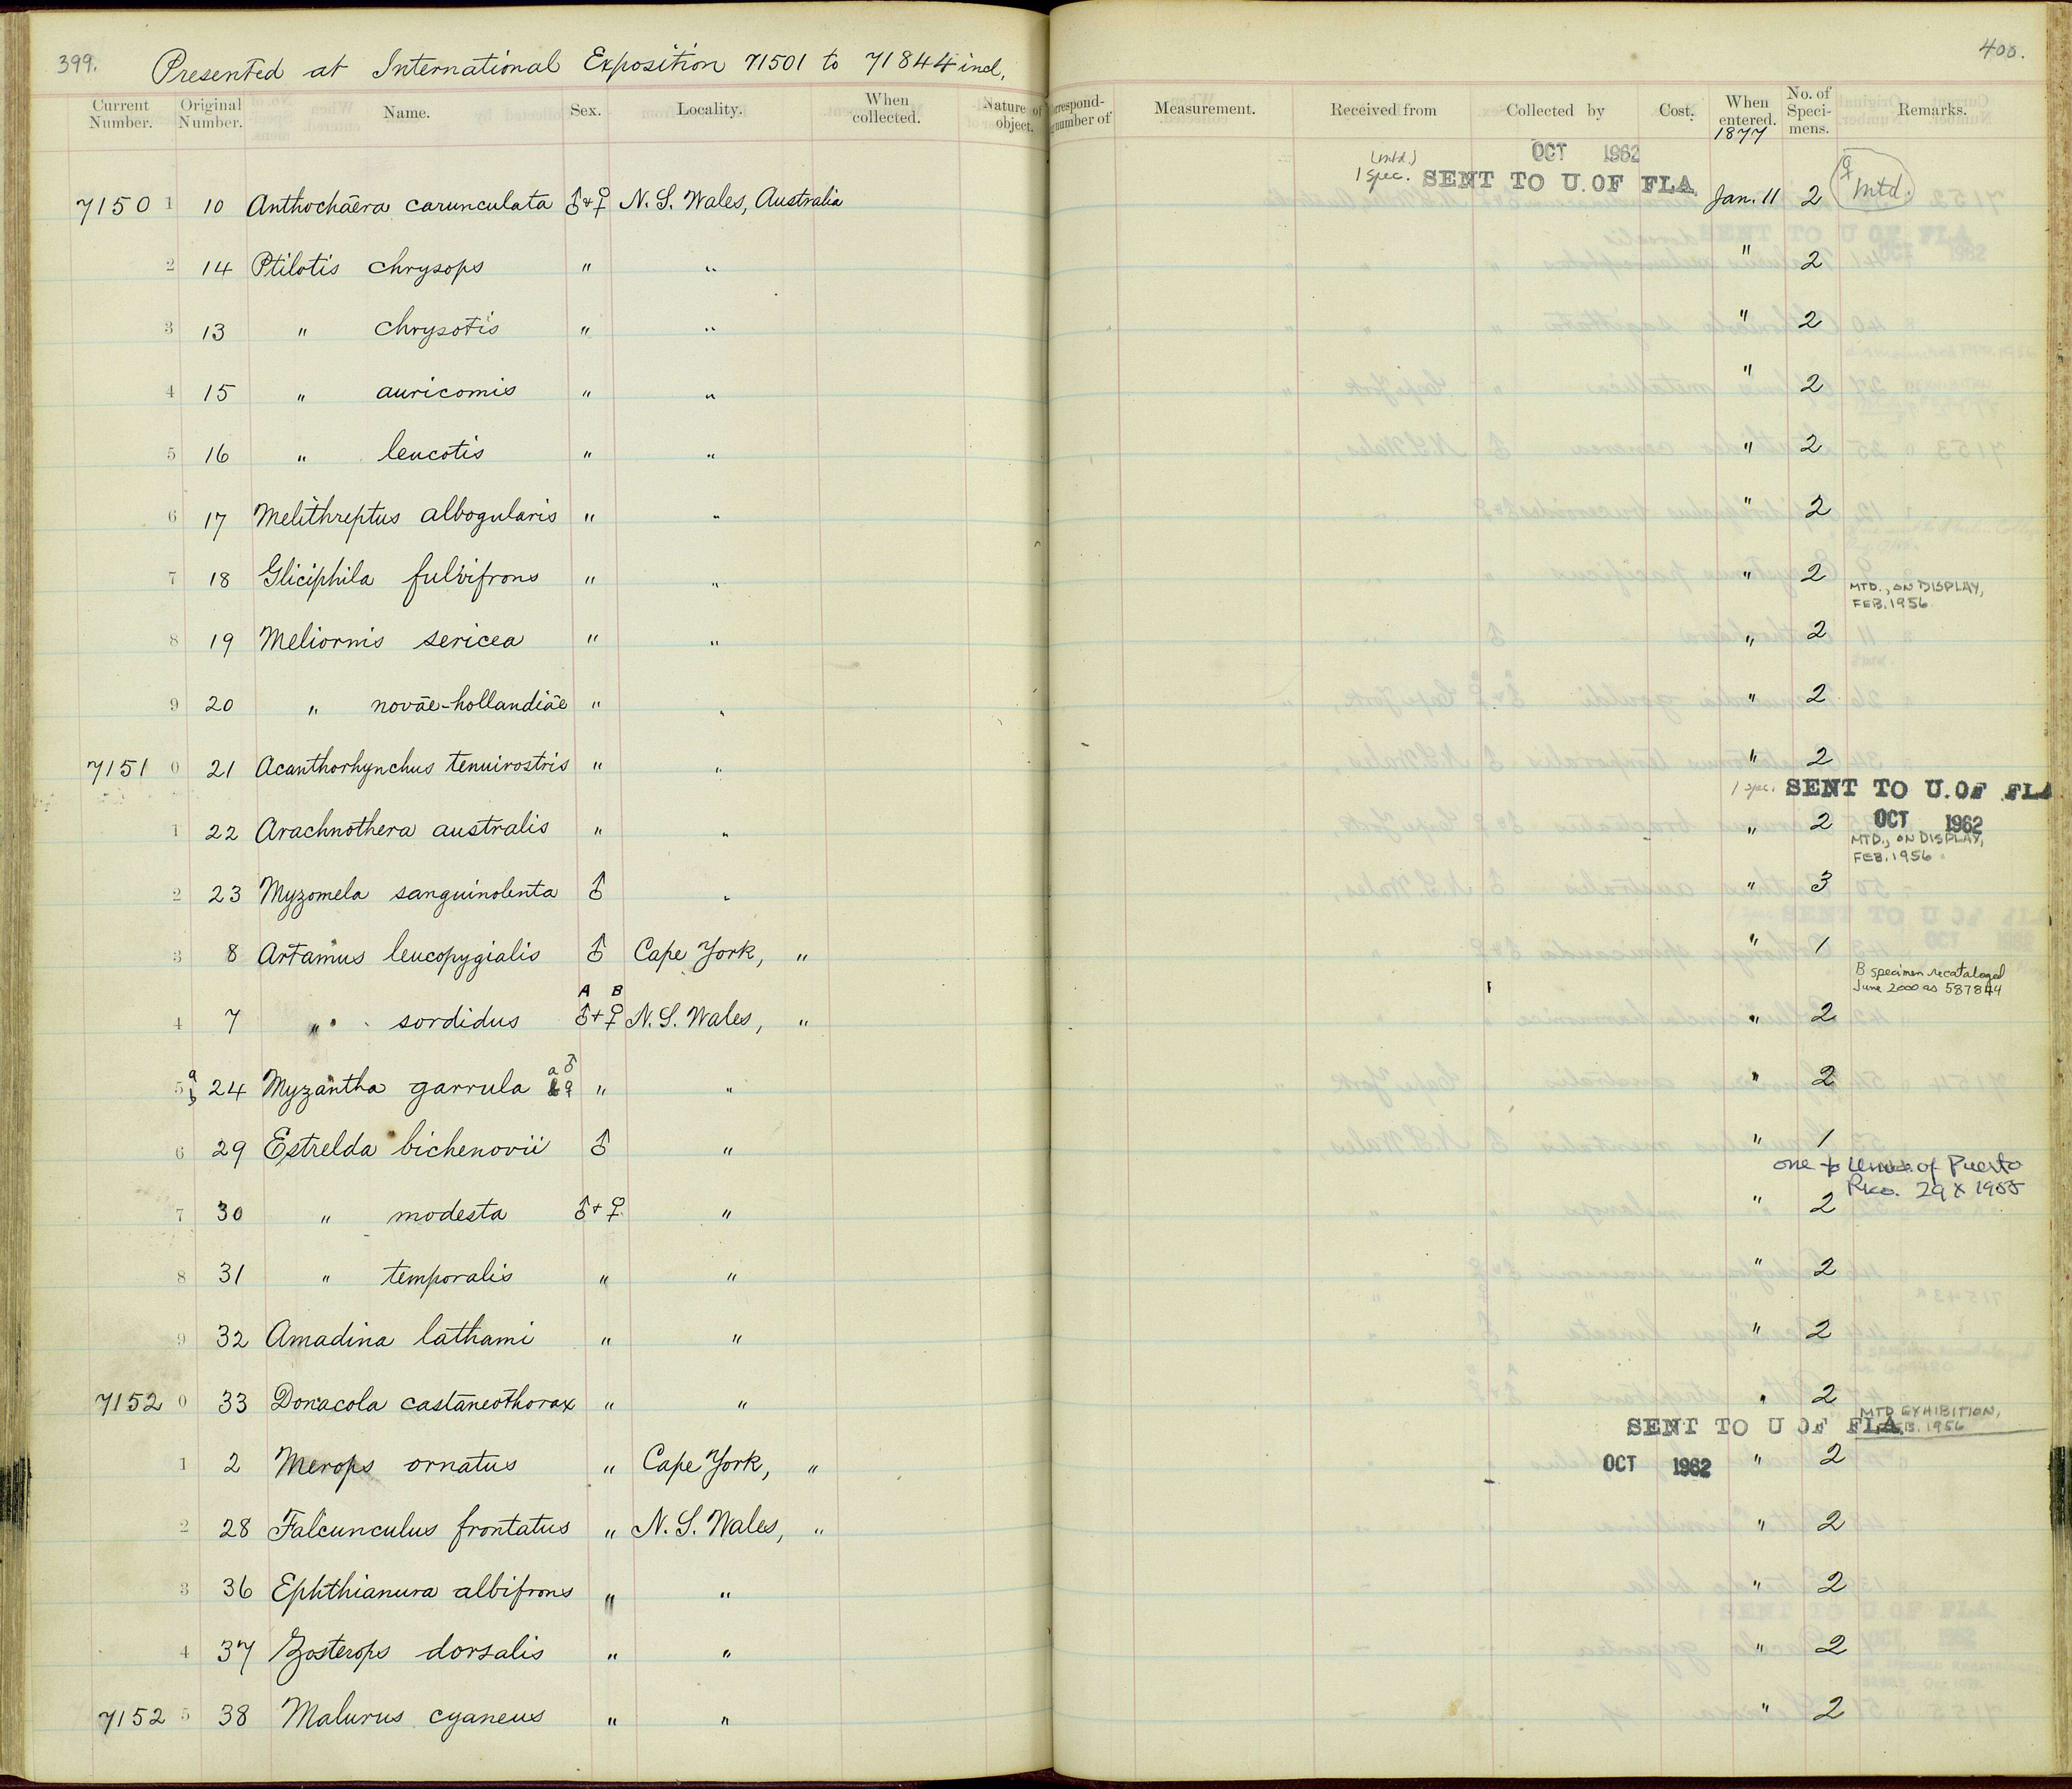 399.
Presented at International Exposition 71501 to 71844 incl.
400.
Current Number. Original Number. Name. Sex. Locality. When collected. Nature of object. Correspond- number of Measurement. Received from Collected by Cost. When entered. No. of Speci- mens. Remarks.
1877
(mtd.) OCT 1962
1 spec. SENT TO U. OF FLA.
7150 1 10 Anthochäera carunculata ♂+♀ N. S. Wales, Australia Jan. 11 2 ♀ mtd.
2 14 Ptilotis chrysops " " " 2
3 13 " chrysotis " " " 2
4 15 " auricomis " " " 2
5 16 " leucotis " " " 2
6 17 Melithreptus albogularis " " " 2
7 18 Gliciphila fulvifrons " " " 2
MTD., ON DISPLAY,
FEB. 1956
8 19 Meliornis sericea " " " 2
9 20 " novāe-hollandiāe " " " 2
7151 0 21 Acanthorhynchus tenuirostris " " " 2
1 spec. SENT TO U. OF FLA
1 22 Arachnothera australis " " " 2 OCT 1962
MTD., ON DISPLAY,
FEB. 1956
2 23 Myzomela sanguinolenta ♂ " " 3
3 8 Artamus leucopygialis ♂ Cape York, " " 1
B specimen recataloged
June 2000 as 587844
A B
4 7 " sordidus ♂+♀ N. S. Wales, " " 2
5 a b 24 Myzantha garrula a ♂ b ♀ " " " 2
6 29 Estrelda bichenovii ♂ " " 1
one to Univ. of Puerto
Rico. 29 X 1955
7 30 " modesta ♂+♀ " " 2
8 31 " temporalis " " " 2
9 32 Amadina lathami " " " 2
7152 0 33 Donacola castaneothorax " " " 2
MTD EXHIBITION,
FEB. 1956
SENT TO U OF FLA
1 2 Merops ornatus " Cape York, " OCT 1962 " 2
2 28 Falcunculus frontatus " N. S. Wales, " " 2
3 36 Ephthianura albifrons " " " 2
4 37 Zosterops dorsalis " " " 2
7152 5 38 Malurus cyaneus " " " 2